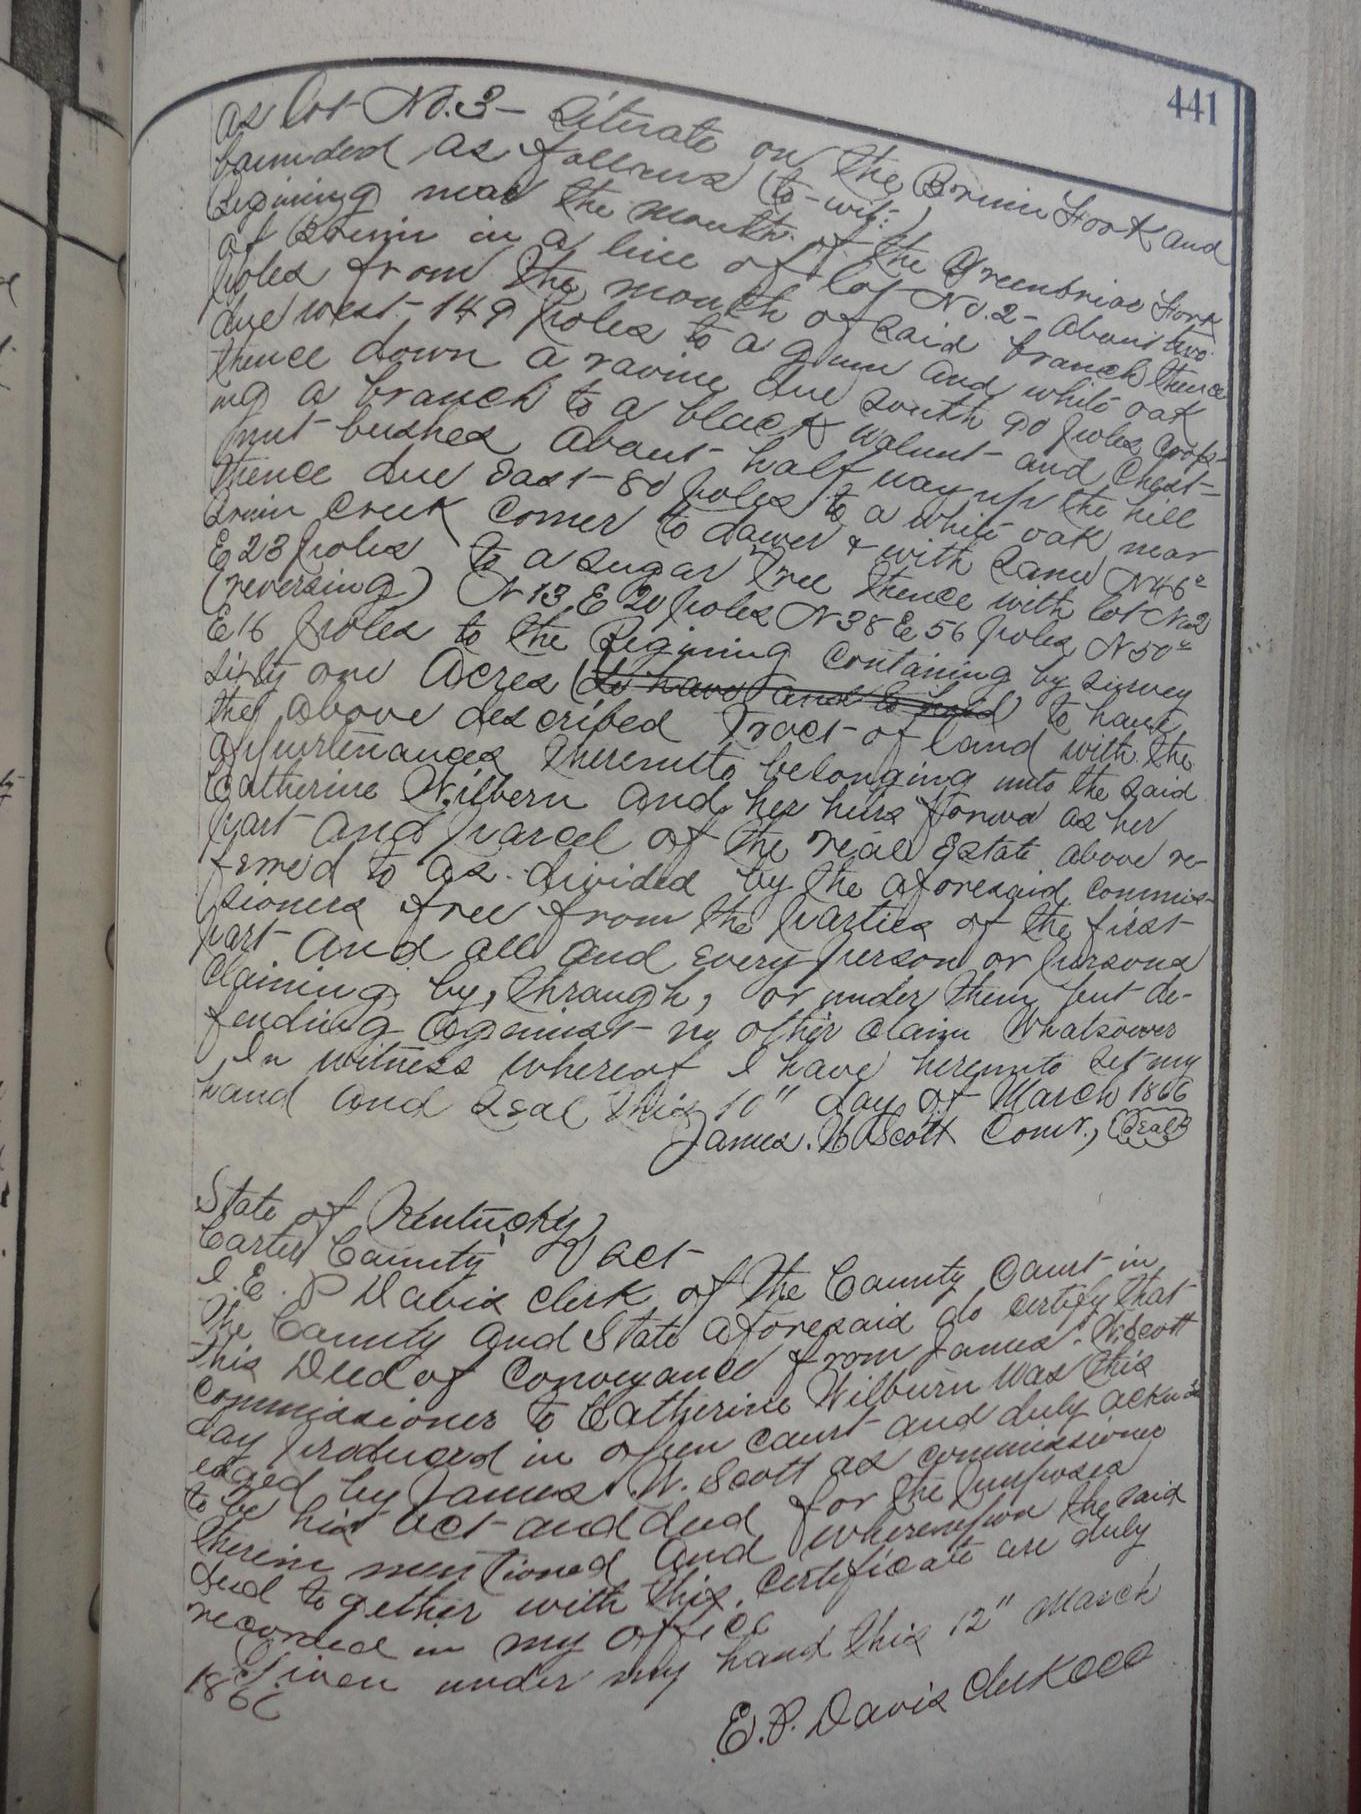 441
as lot No. 3 - Siturate on the Bruin Fork and
bounded as follows (to-wit:)
Begining near the mouth of the Greenbriar Fork
of Bruin in a line of lot No. 2 - about two
poles from the mouth of said branch thence
due west - 149 poles to a gum and white oak
thence down a ravine due south 90 poles cross-
ing a branch to a black walnut - and Chest-
nut bushes about - half way up the hill
thence due East - 80 poles to a white oak near
Bruin Creek Corner to & with Same N46°
E 23 poles to a Sugar Tree thence with lot No 2
(reversing) N 13 E 20 poles N 38 E 56 poles N 50°
E 16 poles to the Begining Containing by survey
sixty one Acres (to have and to hold) to have
the above described Tract - of land with the
appurtenances thereunto belonging unto the said
Catherine Wilbern and her heirs forever as her
part and parcel of the real Estate above re-
ferred to as divided by the aforesaid commis-
sioners free from the parties of the first -
part and all and every person or persons
Claiming by, through, or under them but de-
fending against - no other claim Whatsoever
In witness whereof I have hereunto set my
hand and Seal this 10" day of March 1866
James. W Scott Comr., (Seal)
State of Kentucky
Carter County } Sct
I. E. P Davis Clerk of the County Court in
The County and State aforesaid do certify that
this Deed of Conveyance from James W. Scott
commissioner to Catherine Wilburn was this
day produced in open court and duly acknowl
edged by James. W. Scott as commissioner
to be his act - and deed for the purposes
therein mentioned and whereupon the said
deed to gether with this certificate are duly
recorded in my office
Given under my hand this 12" March
1866
E. P. Davis Clerk CCC